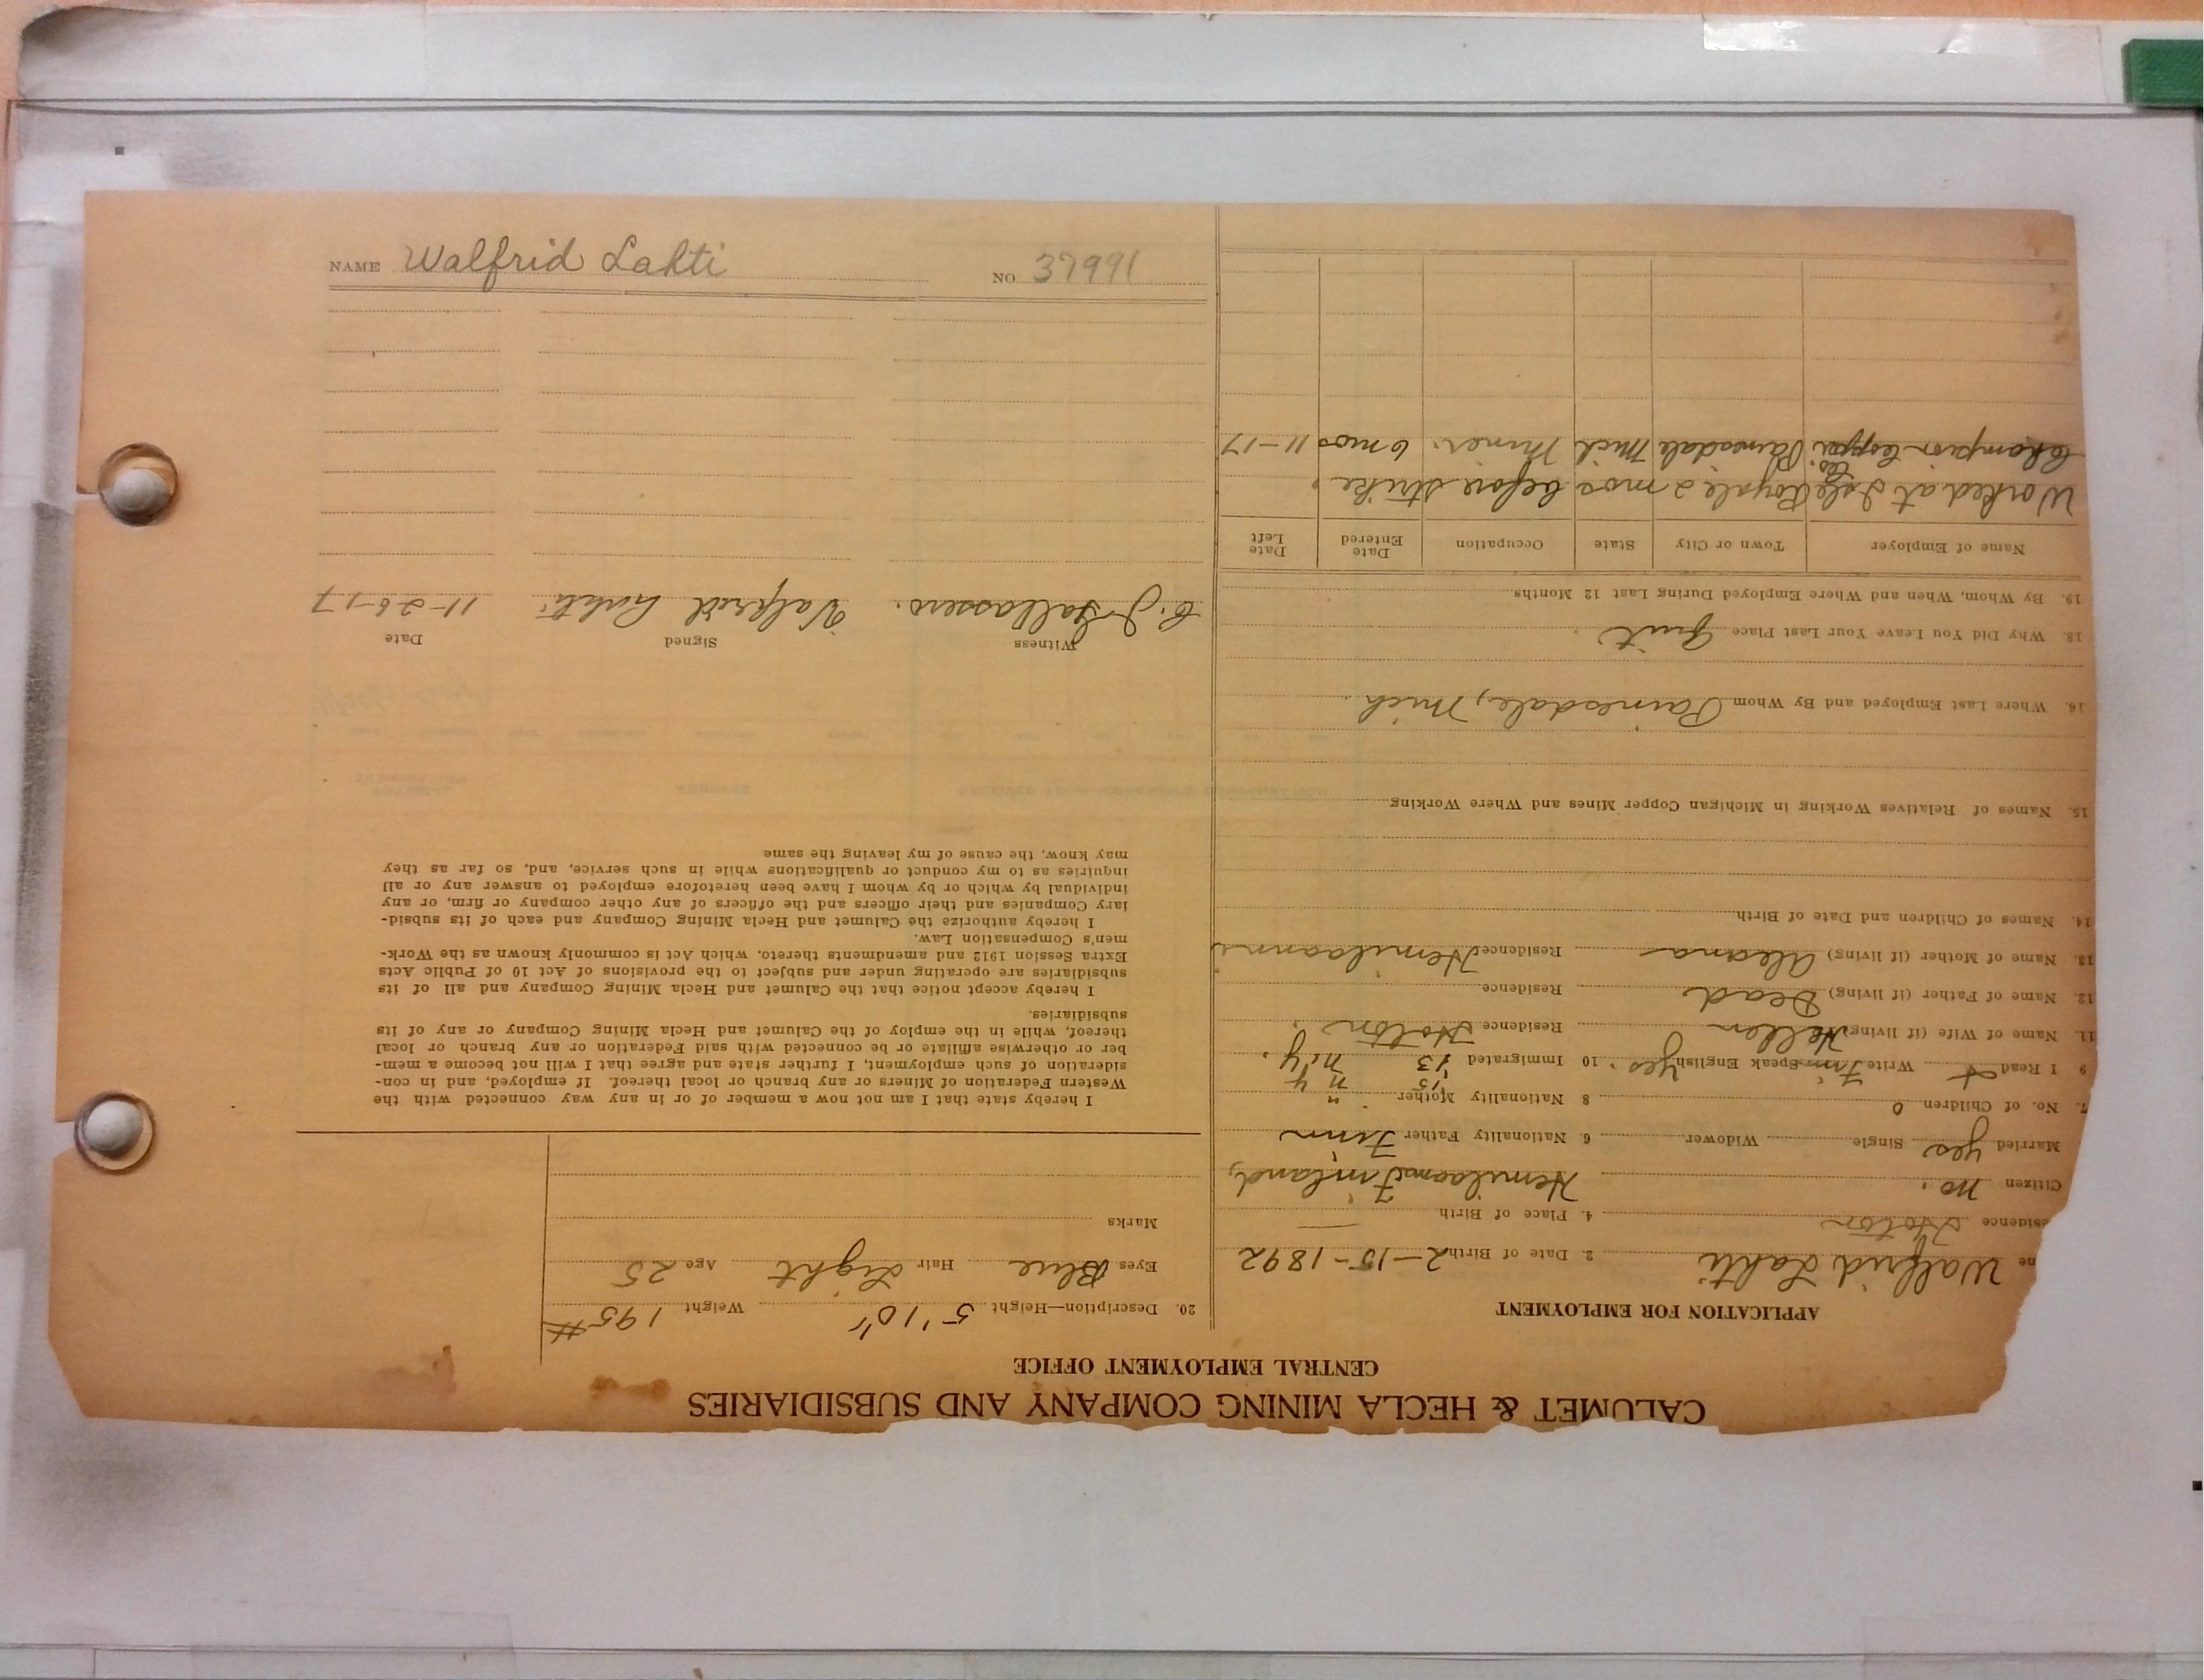 NAME Walfrid Lahti NO. 37991
CALUMET & HECLA MINING COMPANY AND SUBSIDIARIES
CENTRAL EMPLOYMENT OFFICE
APPLICATION FOR EMPLOYMENT
ne Walfrid Lahti 2. Date of Birth 2-15-1892
esidence Hoton 4. Place of Birth
Citizen no. Finland,
Married yes Single Widower 6. Nationality Father Finn
7. No. of Children 0 8 Nationality Mother "
9 I Read Write Finn Speak English yes. 10 Immigrated 13 n.y.
11. Name of Wife (if living) Hellen Residence Hoton.
12. Name of Father (if living) Dead Residence
13. Name of Mother (if living) Residence
14. Names of Children and Date of Birth
15. Names of Relatives Working in Michigan Copper Mines and Where Working
16. Where Last Employed and By Whom Painesdale, Mich.
18. Why Did You Leave Your Last Place Quit
19. By Whom, When and Where Employed During Last 12 Months
Name of Employer Town or City State Occupation Date Entered Date Left
Worked at Isle Royale 2 mos before strike.
Champion Copper Co. Painesdale Mich Miner. 6 mos 11-17
20. Description—Height 5'10" Weight 195#
Eyes Blue Hair Light Age 25
Marks
I hereby state that I am not now a member of or in any way connected with the
Western Federation of Miners or any branch or local thereof. If employed, and in con-
sideration of such employment, I further state and agree that I will not become a mem-
ber or otherwise affiliate or be connected with said Federation or any branch or local
thereof, while in the employ of the Calumet and Hecla Mining Company or any of its
subsidiaries.
I hereby accept notice that the Calumet and Hecla Mining Company and all of its
subsidiaries are operating under and subject to the provisions of Act 10 of Public Acts
Extra Session 1912 and amendments thereto, which Act is commonly known as the Work-
men's Compensation Law.
I hereby authorize the Calumet and Hecla Mining Company and each of its subsid-
iary Companies and their officers and the officers of any other company or firm, or any
individual by which or by whom I have been heretofore employed to answer any or all
inquiries as to my conduct or qualifications while in such service, and, so far as they
may know, the cause of my leaving the same
Witness Signed Date
Walfrid Lahti 11-26-17